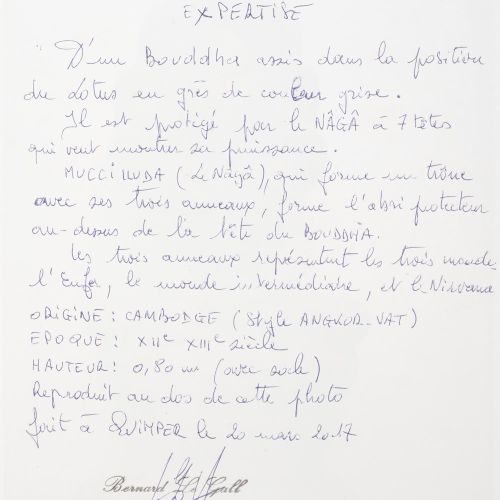 EXPERTISE
" D'un Bouddha assis dans la position
du Lotus en grès de couleur grise.
Il est protégé par le NÂGÂ à 7 têtes
qui veut montrer sa puissance.
MUCCILLUDA (Le Nâgâ), qui forme un trône
avec ses trois anneaux, forme l'abri protecteur
au-dessus de la tête du BOUDDHA.
Les trois anneaux représentent les trois monde
l'Enfer, le monde intermédiaire, et le Nirvana
ORIGINE : CAMBODGE (Style ANGKOR-VAT)
EPOQUE : XIIe XIIIe siècle
HAUTEUR : 0,80 m (avec socle)
Reproduit au dos de cette photo
fait à QUIMPER le 20 mars 2017
Bernard Le Gall